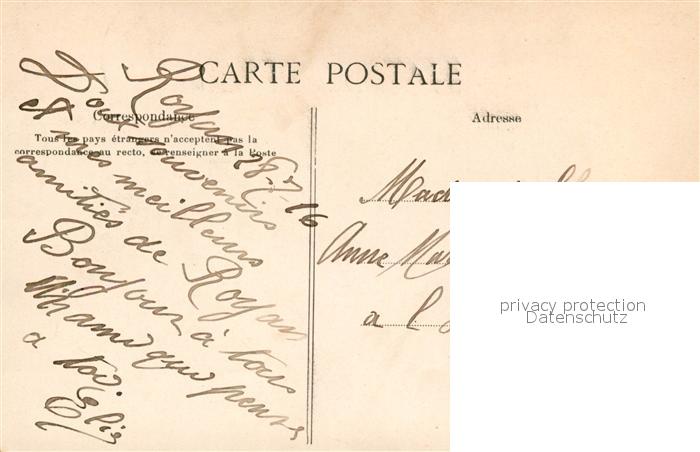 CARTE POSTALE
Correspondance
Adresse
Tous les pays étrangers n'acceptent pas la
correspondance au recto, se renseigner à la Poste
Royan 28-7-16
Doux souvenirs
& mes meilleurs
amitiés de Royan
Bonjour à tous
L'amie qui pense
a toi
Anne
a
privacy protection
Datenschutz